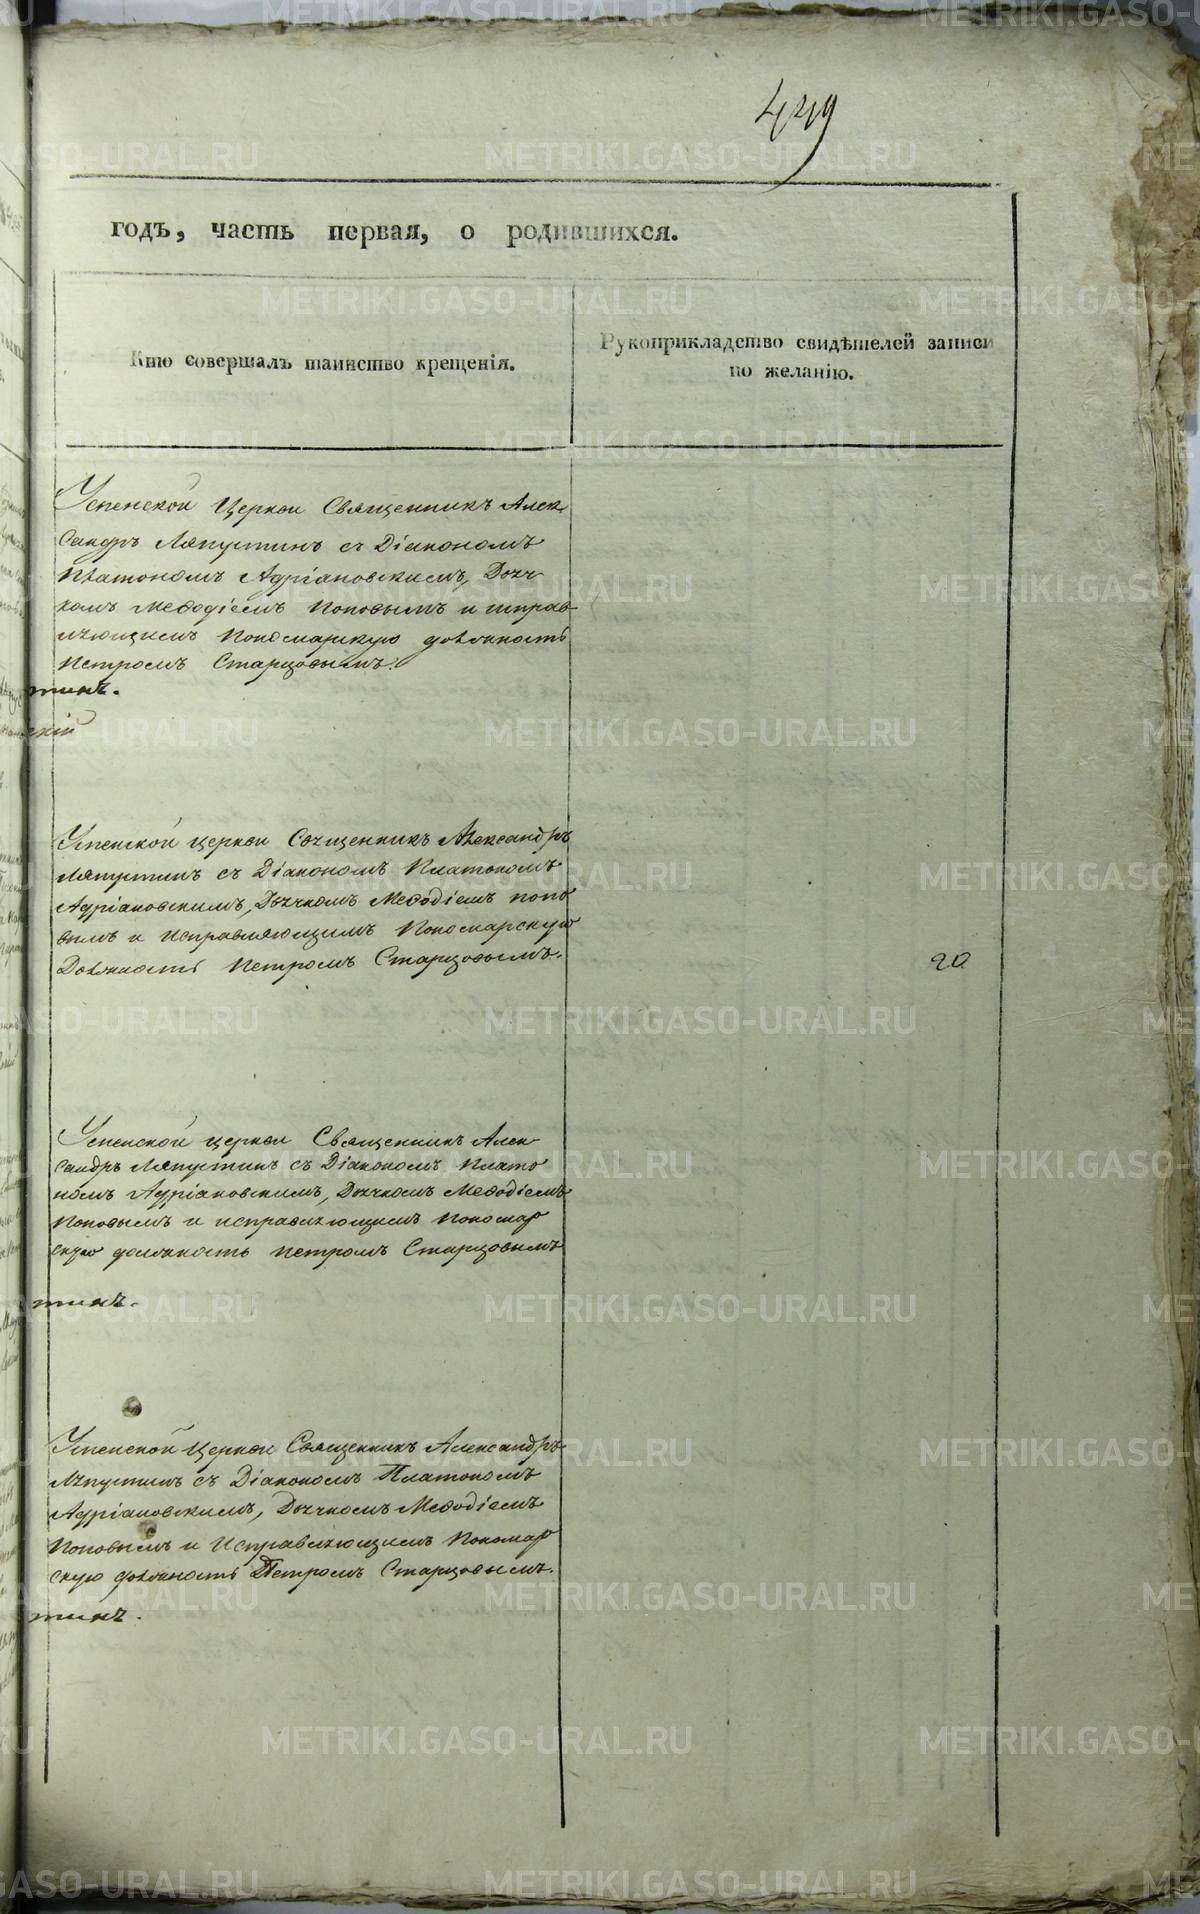 449
годъ, часть первая, о родившихся.
Кто совершалъ таинство крещенія.
Рукоприкладство свидѣтелей записи
по желанію.
Успенской Церкви Священникъ Алек-
сандръ Ляпустинъ съ Діакономъ
Платономъ Адріановскимъ, Дьяч-
комъ Меѳодіемъ Поповымъ и исправ-
ляющимъ Пономарскую должность
Петромъ Старцовымъ.
тинъ.
скій
Успенской церкви Священникъ Александръ
Ляпустинъ съ Діакономъ Платономъ
Адріановскимъ, Дьячкомъ Меѳодіемъ Попо-
вымъ и исправляющимъ Пономарскую
Должность Петромъ Старцовымъ.
20
Успенской церкви Священникъ Алек-
сандръ Ляпустинъ съ Діакономъ Плато-
номъ Адріановскимъ, Дьячкомъ Меѳодіемъ
Поповымъ и исправляющимъ Пономар-
скую должность Петромъ Старцовымъ
тинъ.
Успенской Церкви Священникъ Александръ
Ляпустинъ съ Діакономъ Платономъ
Адріановскимъ, Дьячкомъ Меѳодіемъ
Поповымъ и Исправляющимъ Пономар-
скую должность Петромъ Старцовымъ.
тинъ.
METRIKI.GASO-URAL.RU